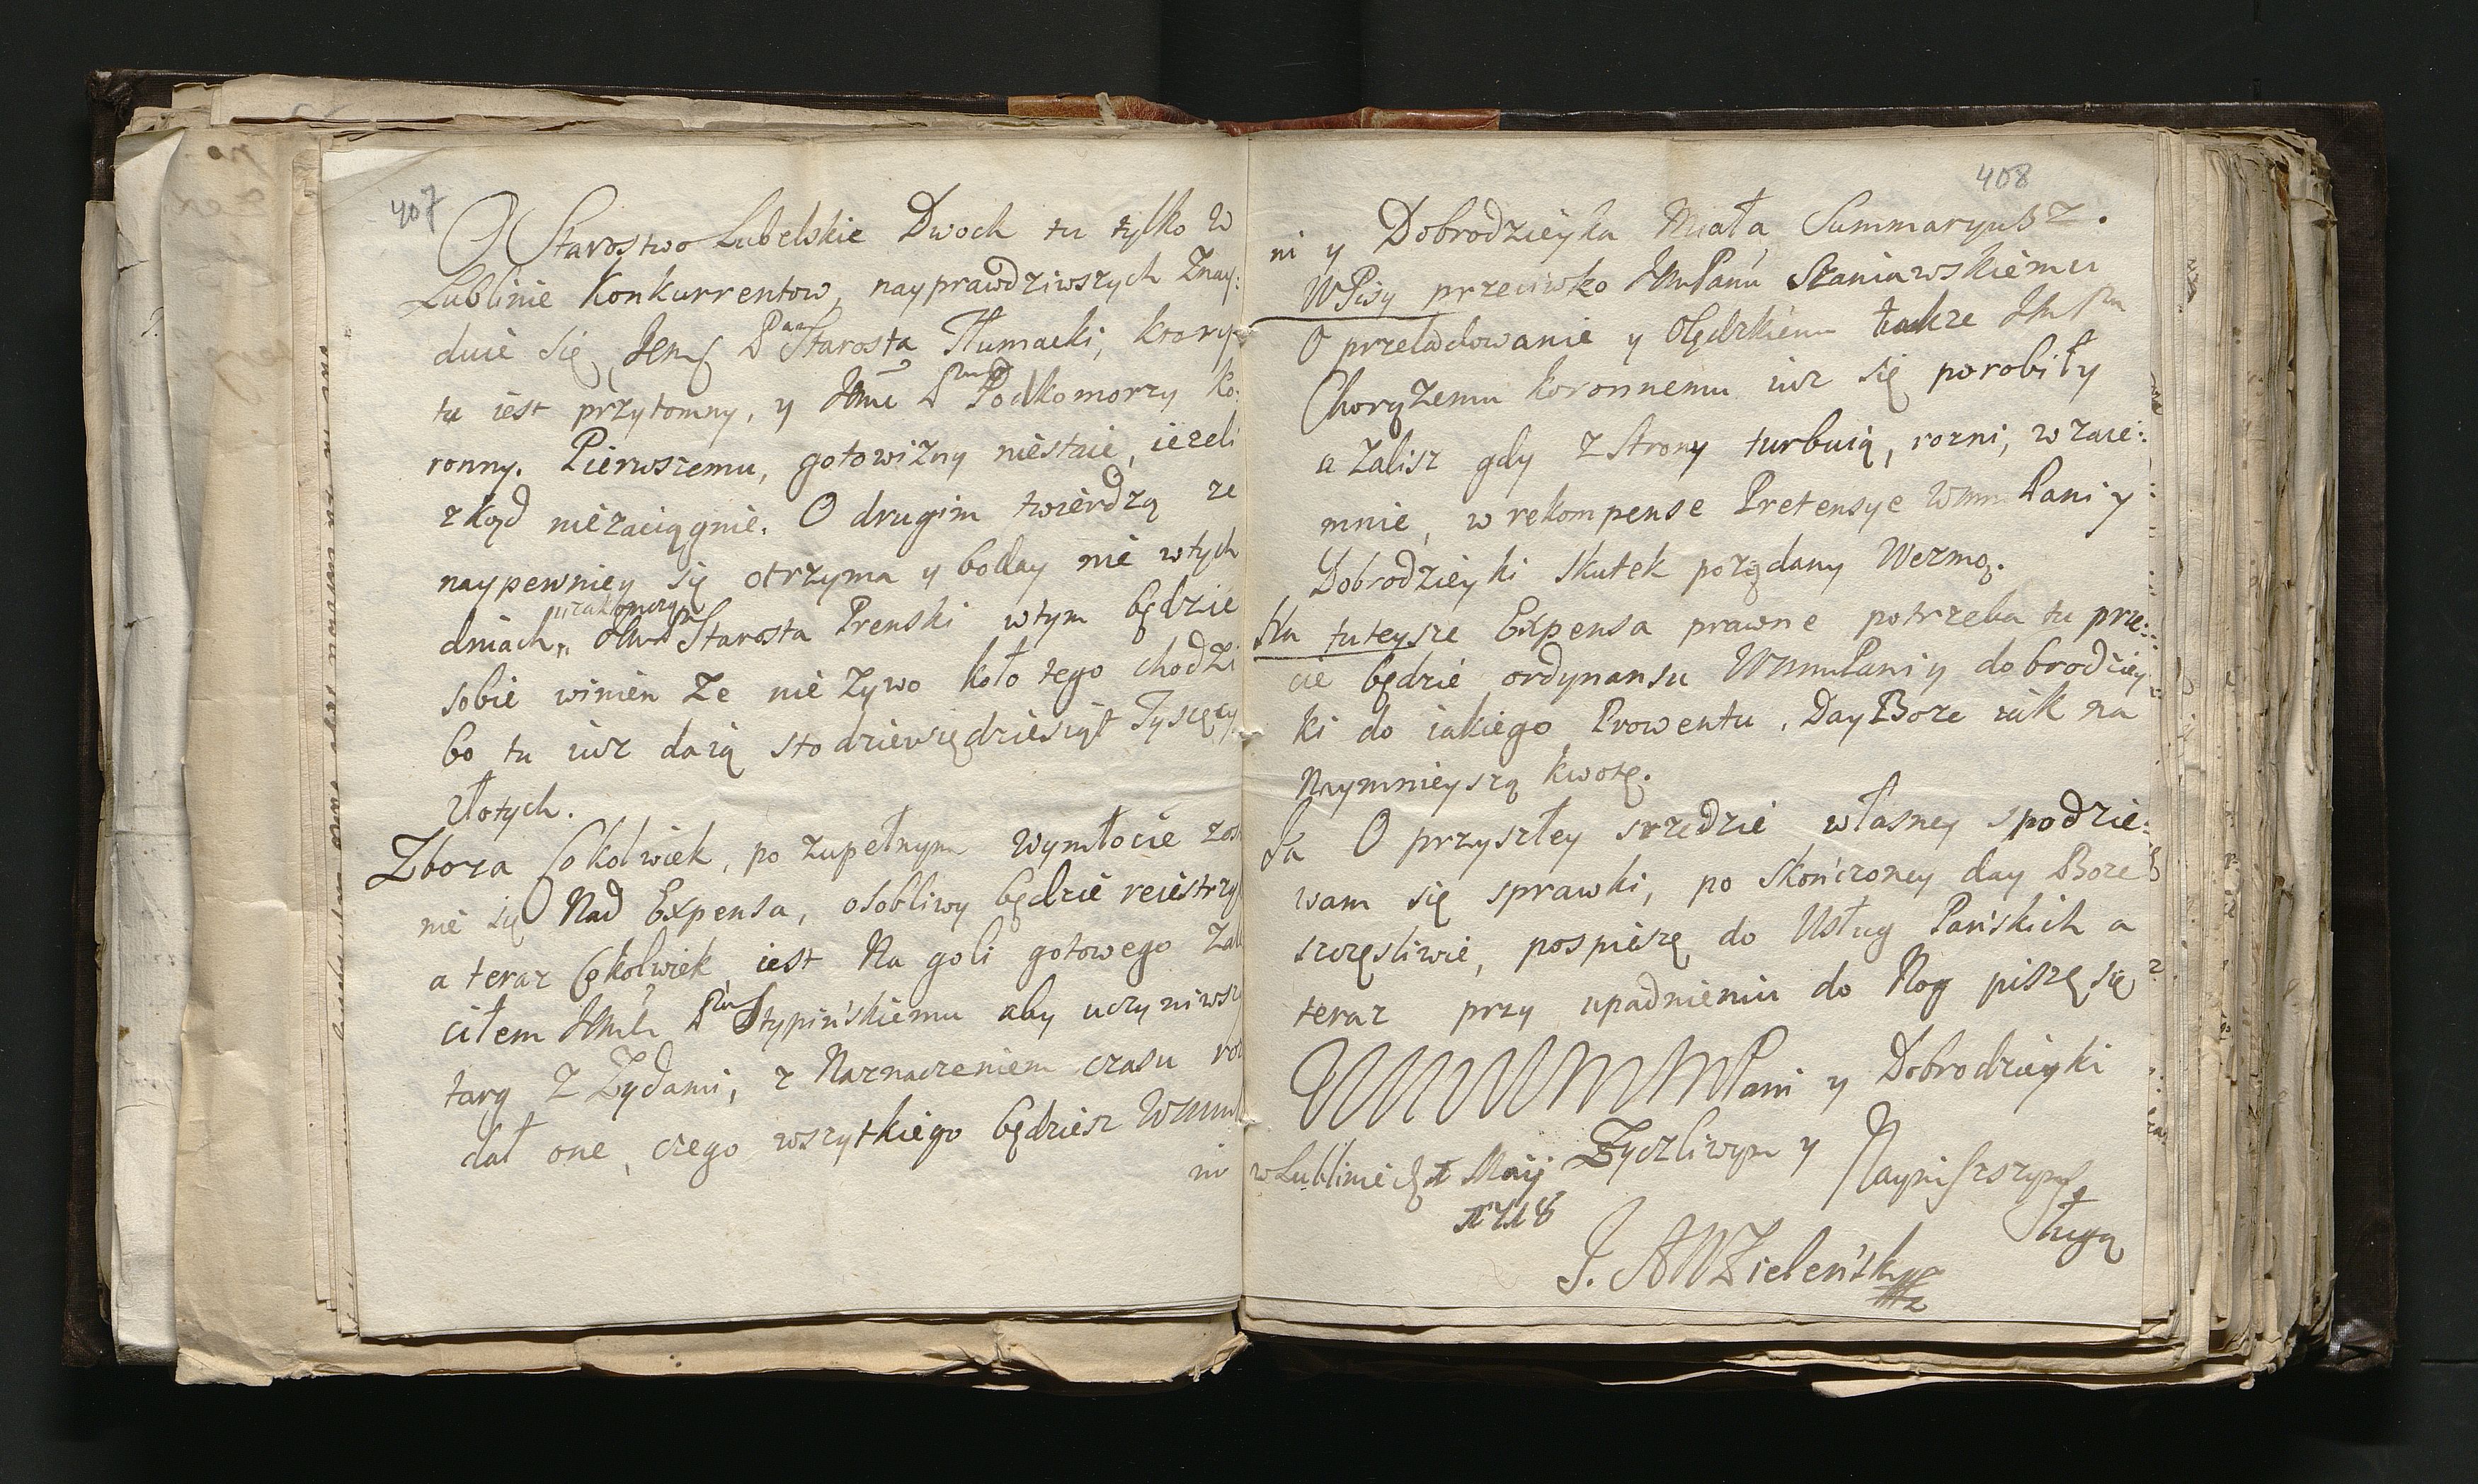 407
O Starostwo Lubelskie Dwoch tu tylko w
Lublinie Konkurrentow, nayprawdziwszych Znay:
duie się, Jem Pan Starosta Tłumacki, ktory
tu iest przytomny, y Pan Podkomorzy Ko:
ronny. Pierwszemu, gotowizny niestaie, iezeli
zkąd niezaciągnie. O drugim twierdzą ze
naypewniey się otrzyma y boday nie wtych
dniach, Starosta Prenski wtym będzie
sobie winien Ze nie Zywo koło tego chodzi
bo tu iusz daią sto dziewiędziesiąt Tysięcy
złotych.
Zboza Cokolwiek, po zupełnym wymłocie zos
nie się Nad Expensa, osobliwy będzie reiestrzy
a teraz Cokolwiek iest Na goli gotowego Zal
ciłem Stypińskiemu aby uczyniwsz
targ Z Zydami, z Naznaczeniem czasu
dał one, czego wszytkiego będziesz Wmm
ni
408
ni y Dobrodzieyka Miała Summaryusz.
WPisy przeciwko JmPanu Szaniawskiemu
O przeladowanie y Olędzkiemu takze Jm Pn
Chorązemu koronnemu iusz się porobiły
a Zalisz gdy z Strony turbuią, rozni, wzaie:
mnie, w rekompense Pretensye Wmm Pani y
Dobrodzieyki skutek pozędany Wezmą.
Na tuteysze Expensa prawne potrzeba tu prze:
cie będzie ordynansu WmmPani y dobrodziey
ki do iakiego Prowentu. Day Boze iak na
Naymnieyszą kwotę.
Ja O przyszłey srzedzie własney spodzie:
wam się sprawki, po skończoney day Boze
szczęsliwie, pospieszę do Usług Pańskich a
teraz przy upadnieniu do Nog piszę się
WMMPani y Dobrodzieyki
Zyczliwym y Nayniszszym
w Lublinie Maij
1718
Sługą
J. AWZieleński